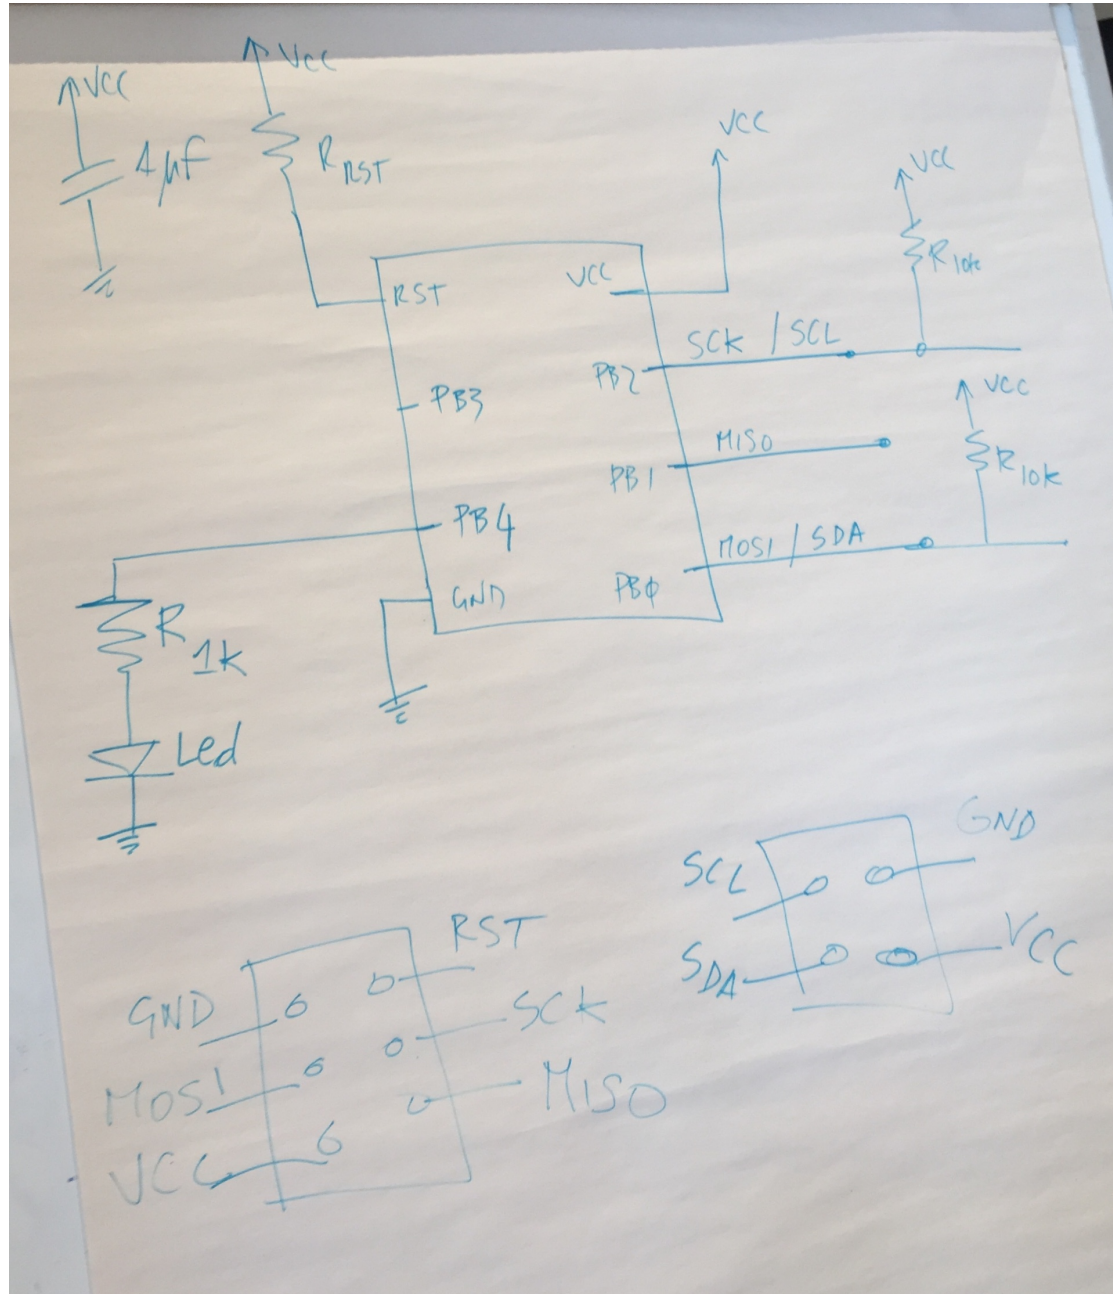 VCC
VCC
1µf
R RST
VCC
VCC
R 10k
RST
VCC
SCK / SCL
PB2
PB3
VCC
MISO
PB1
R 10k
PB4
MOSI / SDA
GND
PB0
R 1k
Led
GND
SCL
SDA
VCC
RST
GND
SCK
MOSI
MISO
VCC